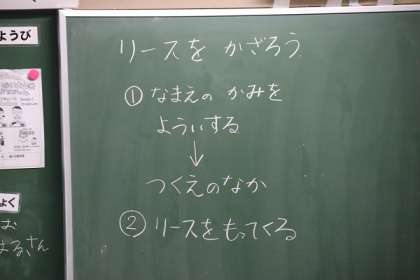 リースを かざろう
① なまえの かみを
よういする
↓
つくえのなか
② リースをもってくる
ようび